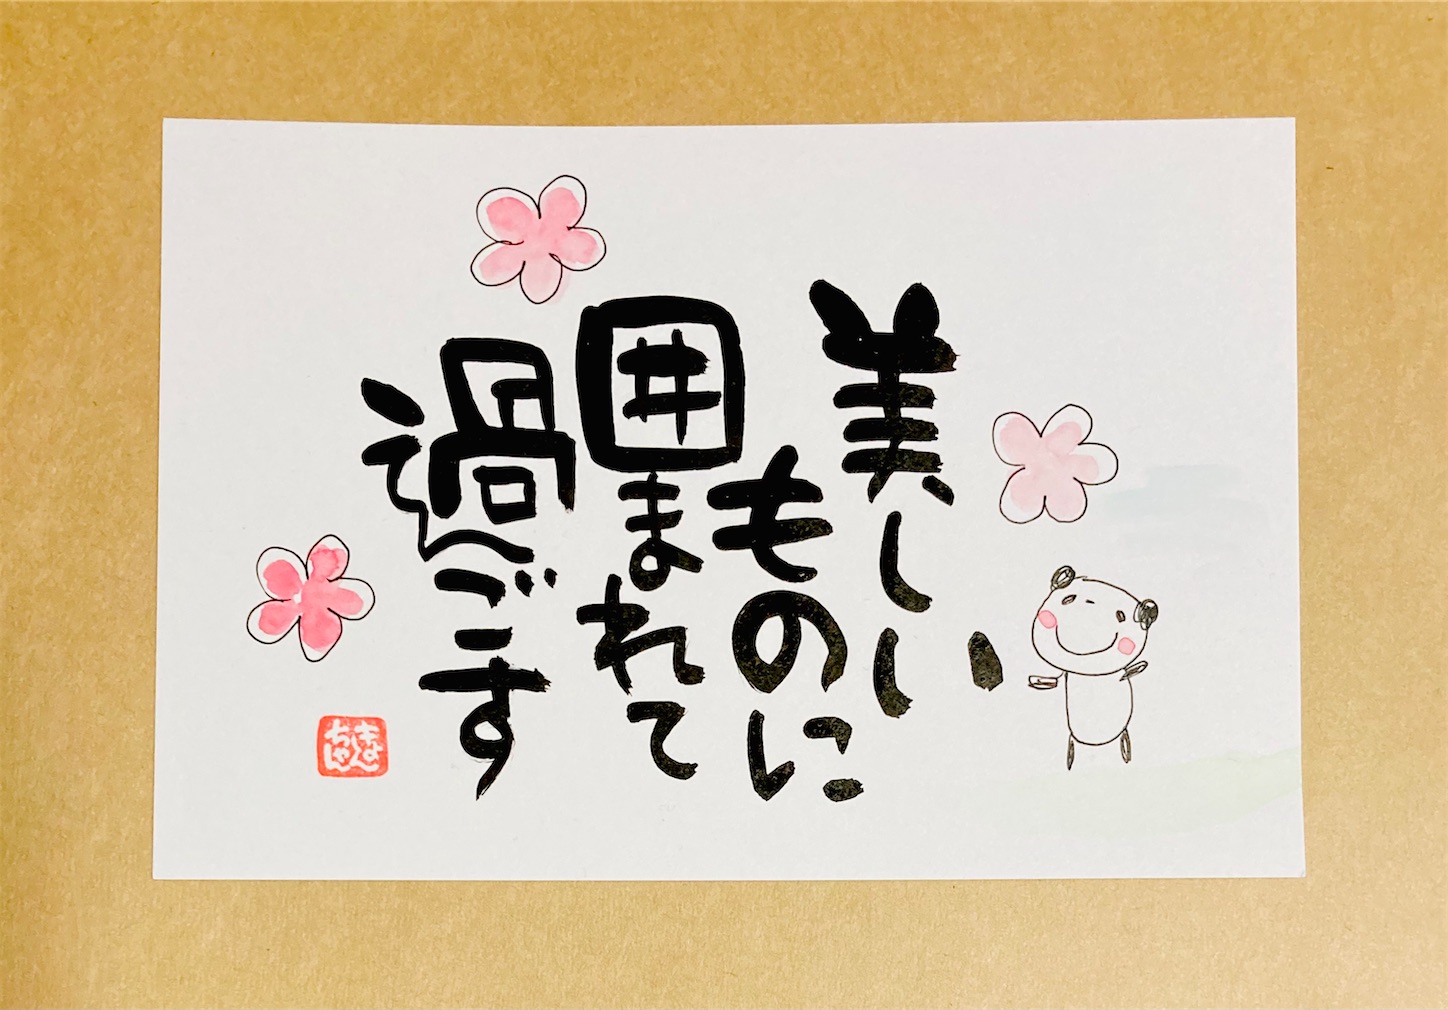 美しい
ものに
囲まれて
過ごす
きよ
ちゃん